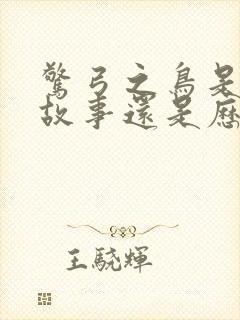 驚弓之鳥是
故事還是歷
王驍輝